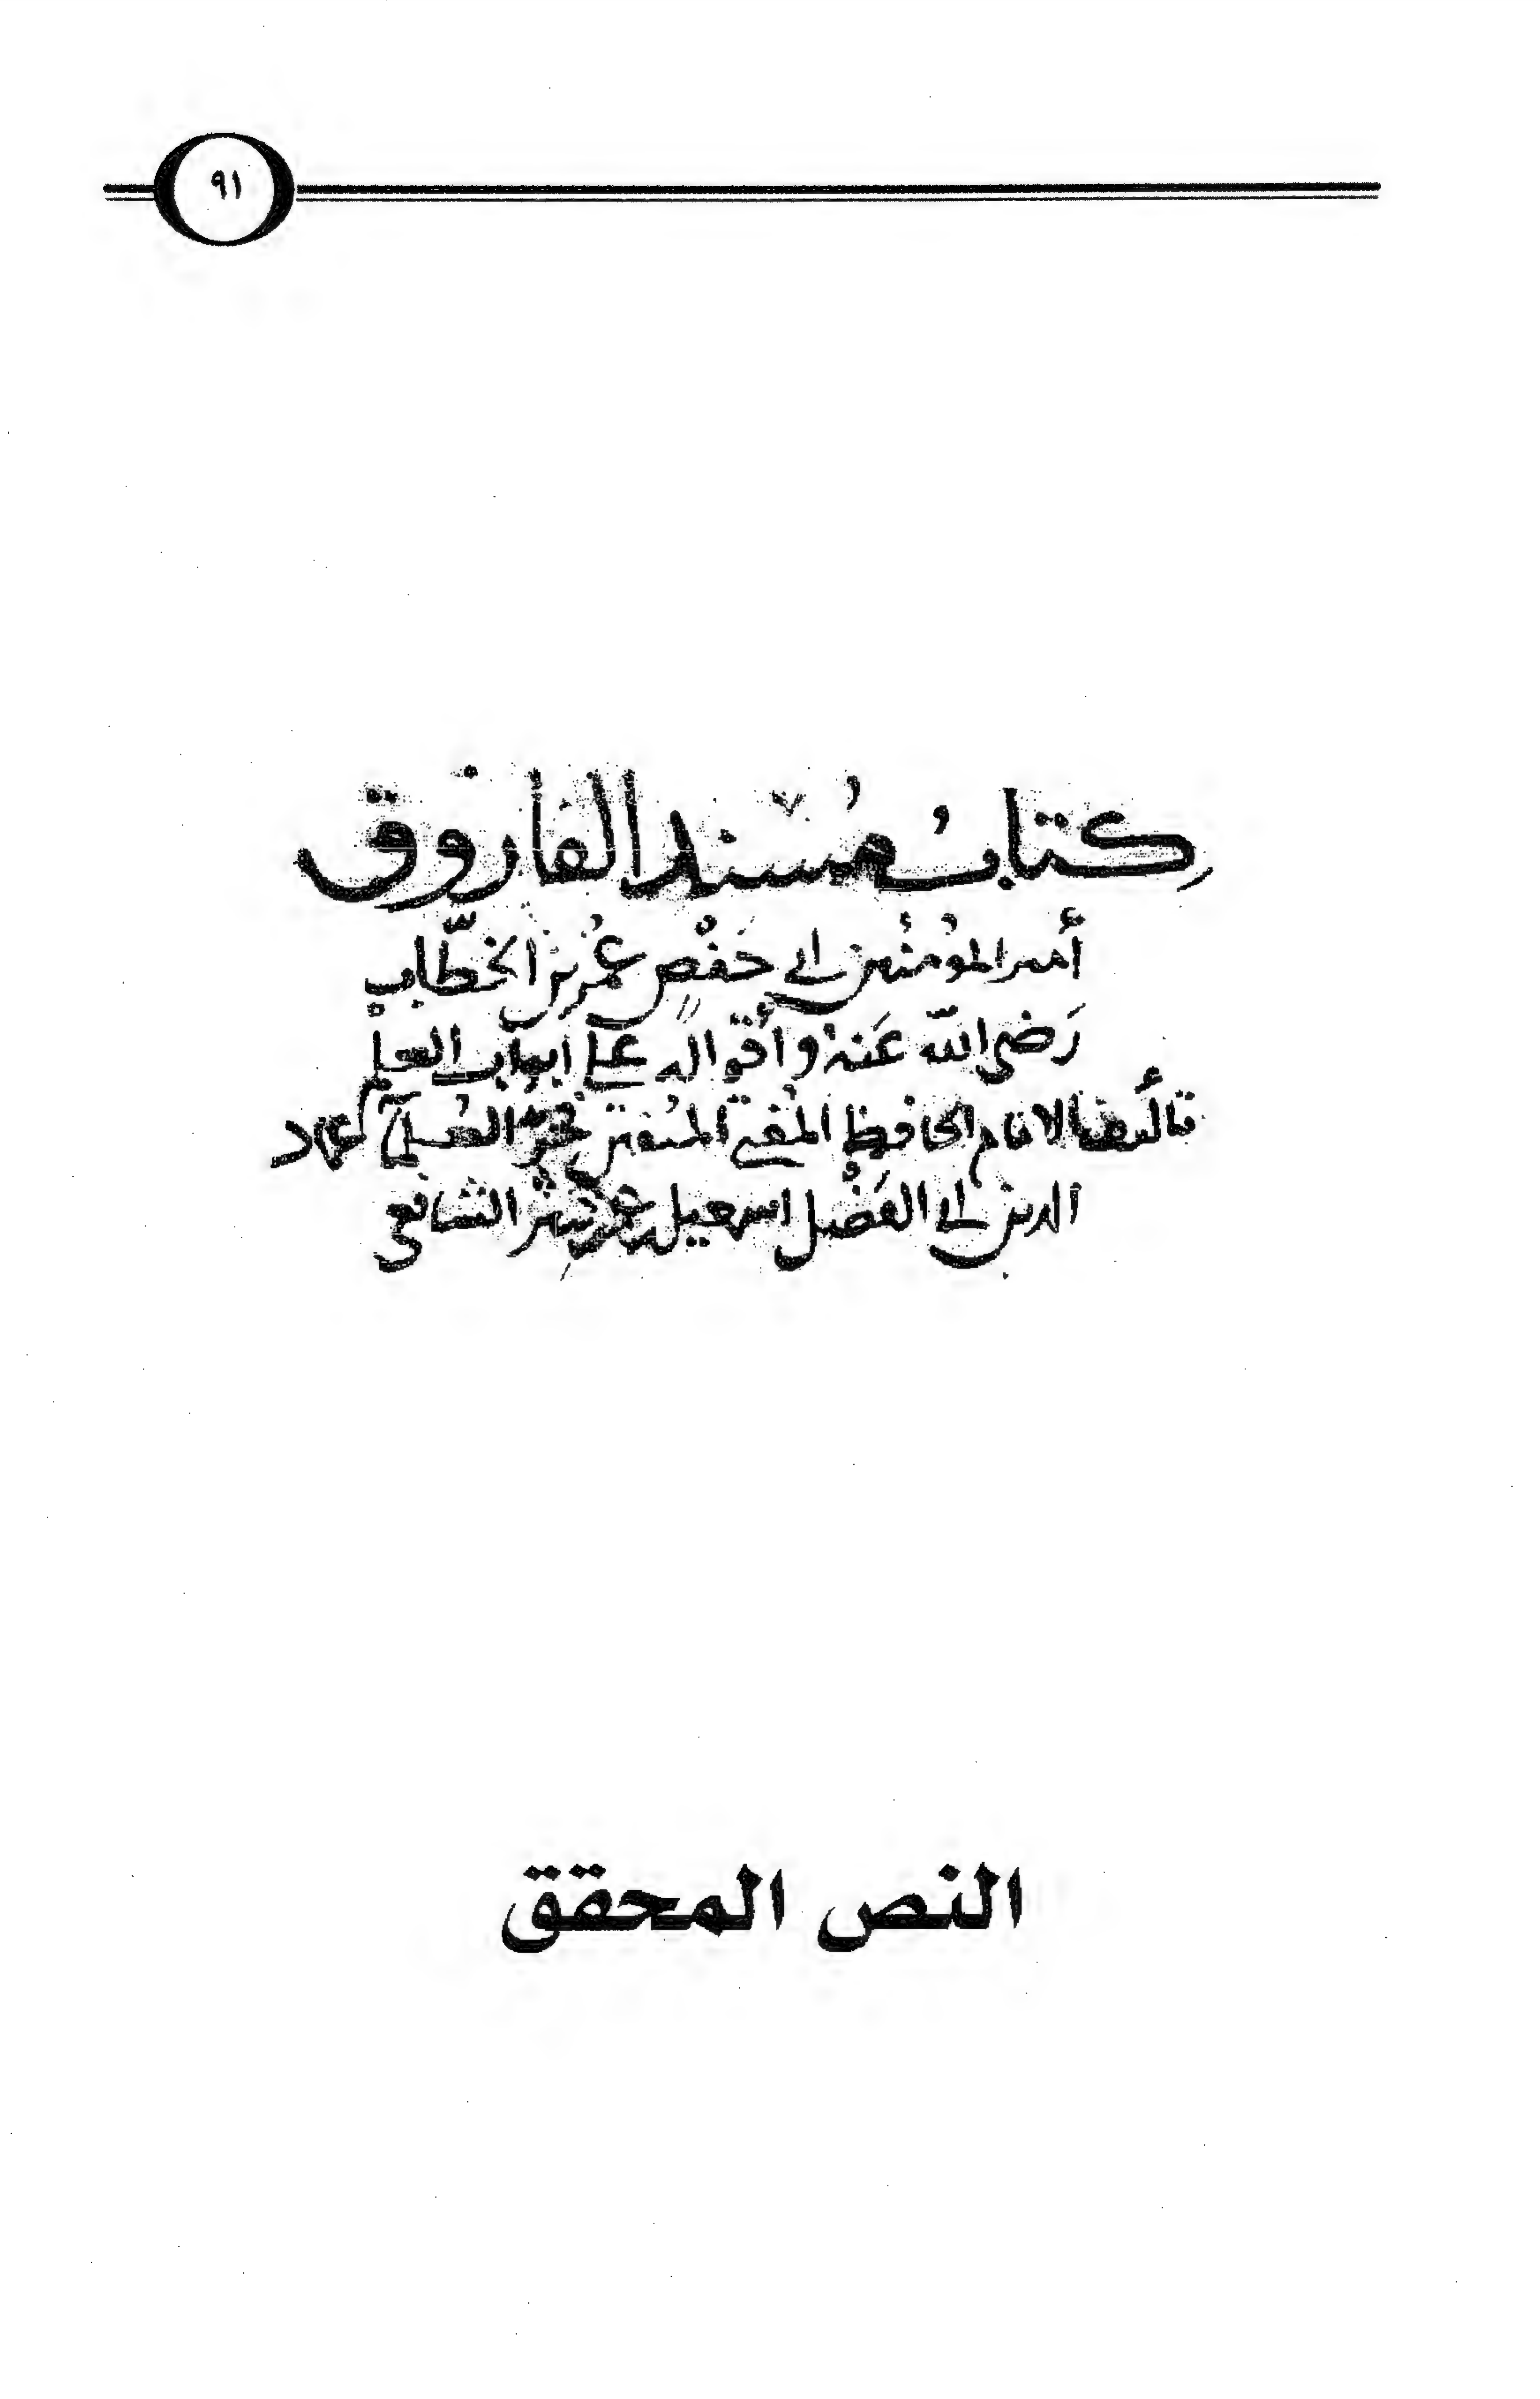 ٩١
كتابُ مُسند الفاروق
أمير المؤمنين ابي حَفْصٍ عُمَر بن الخطّاب
رَضي الله عَنهُ وأقواله على ابواب العلم
تأليف الامام الحافظ المفتي المتقن فخر العلماء عماد
الدين ابي الفَضْل اسمعيل بن عمر بن كثير الشافعي
النص المحقق